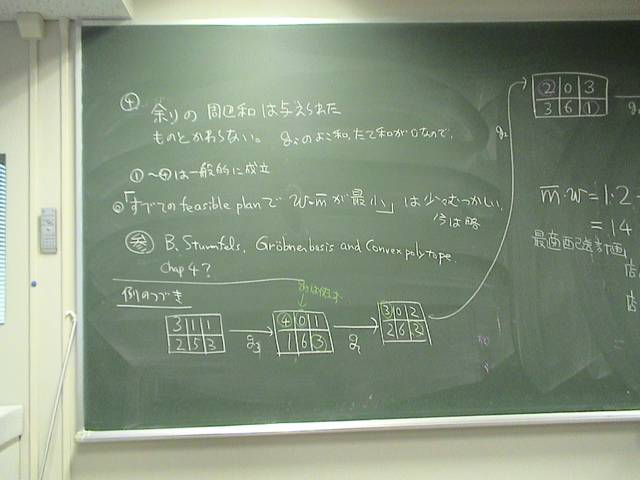 ④ 余りの周辺和は与えられた
ものとかわらない。 giのよこ和,たて和が0なので.
①〜④は一般的に成立
「すべてのfeasible planで w・m̅ が最小」は少々むつかしい.
今は略
参 B. Sturmfels, Gröbner basis and Convex polytope.
Chap 4?
例のつづき
3 1 1
2 5 3
g3
4 0 1
1 6 3
g1
3 0 2
2 6 2
g2
2 0 3
3 6 1
m̅・w = 1・2
= 14
最適配送計画
店
店